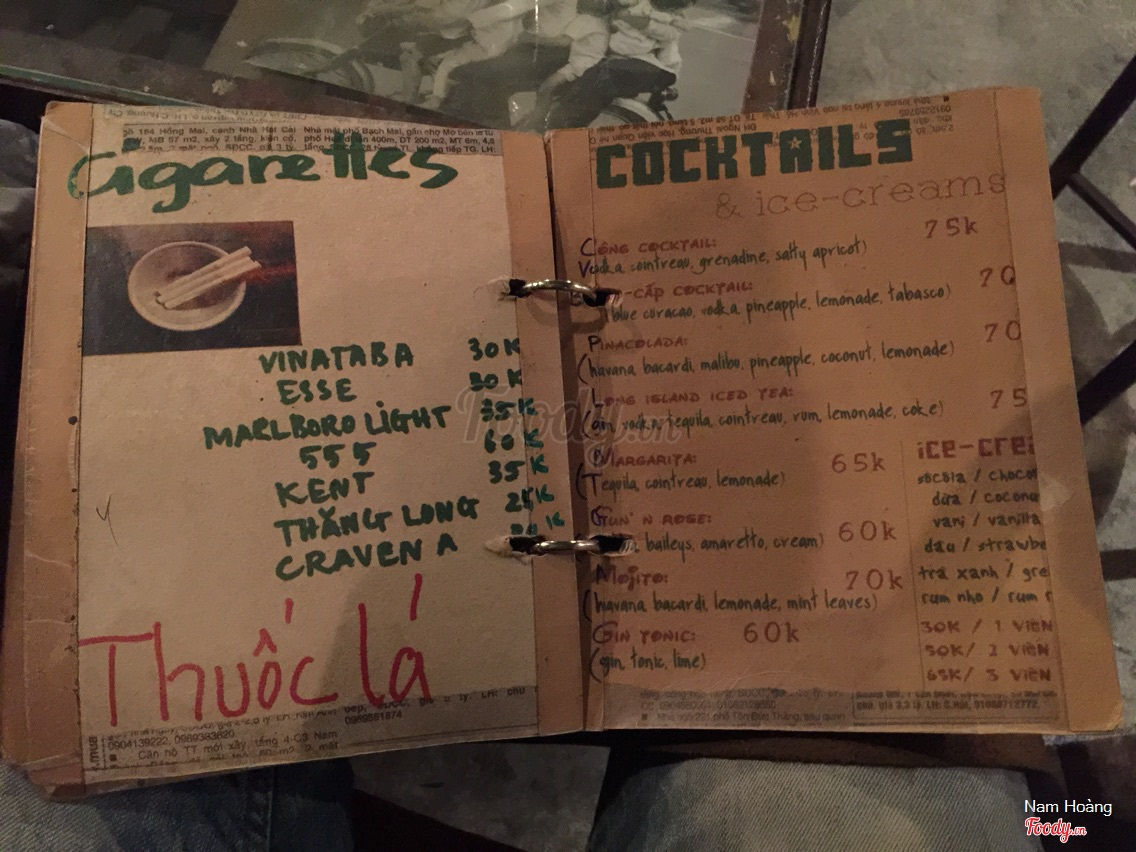 Cigarettes
VINATABA 30K
ESSE 30K
MARLBORO LiGHT 35K
555 60K
KENT 35K
THĂNG LONG
CRAVEN A
Thuốc lá
0904139222, 0989383620
Căn hộ TT mới xây, tầng 4-C3 Nam
0989581874
COCKTAILS
& ice-creams
CỘNG COCKTAIL: 75k
Vodka, cointreau, grenadine, salty apricot)
-CẤP COCKTAIL: 70
blue curacao, vodka, pineapple, lemonade, tabasco)
PINACOLADA: 70
(havana, bacardi, malibu, pineapple, coconut, lemonade)
LONG ISLAND ICED TEA: 75
(Gin, vodka, tequila, cointreau, rum, lemonade, coke)
MARGARITA: 65k
(Tequila, cointreau, lemonade)
GUN' N ROSE: 60k
baileys, amaretto, cream)
MOJITO: 70k
(havana, bacardi, lemonade, mint leaves)
GIN TONIC: 60k
(gin, tonic, lime)
ice-crea
sôcôla / chocol
dừa / cocona
vani / vanilla
dâu / strawbe
trà xanh / gre
rum nho / rum r
30K / 1 VIÊN
50K / 2 VIÊN
65K / 3 VIÊN
Foody.vn
Nam Hoàng
Foody.vn